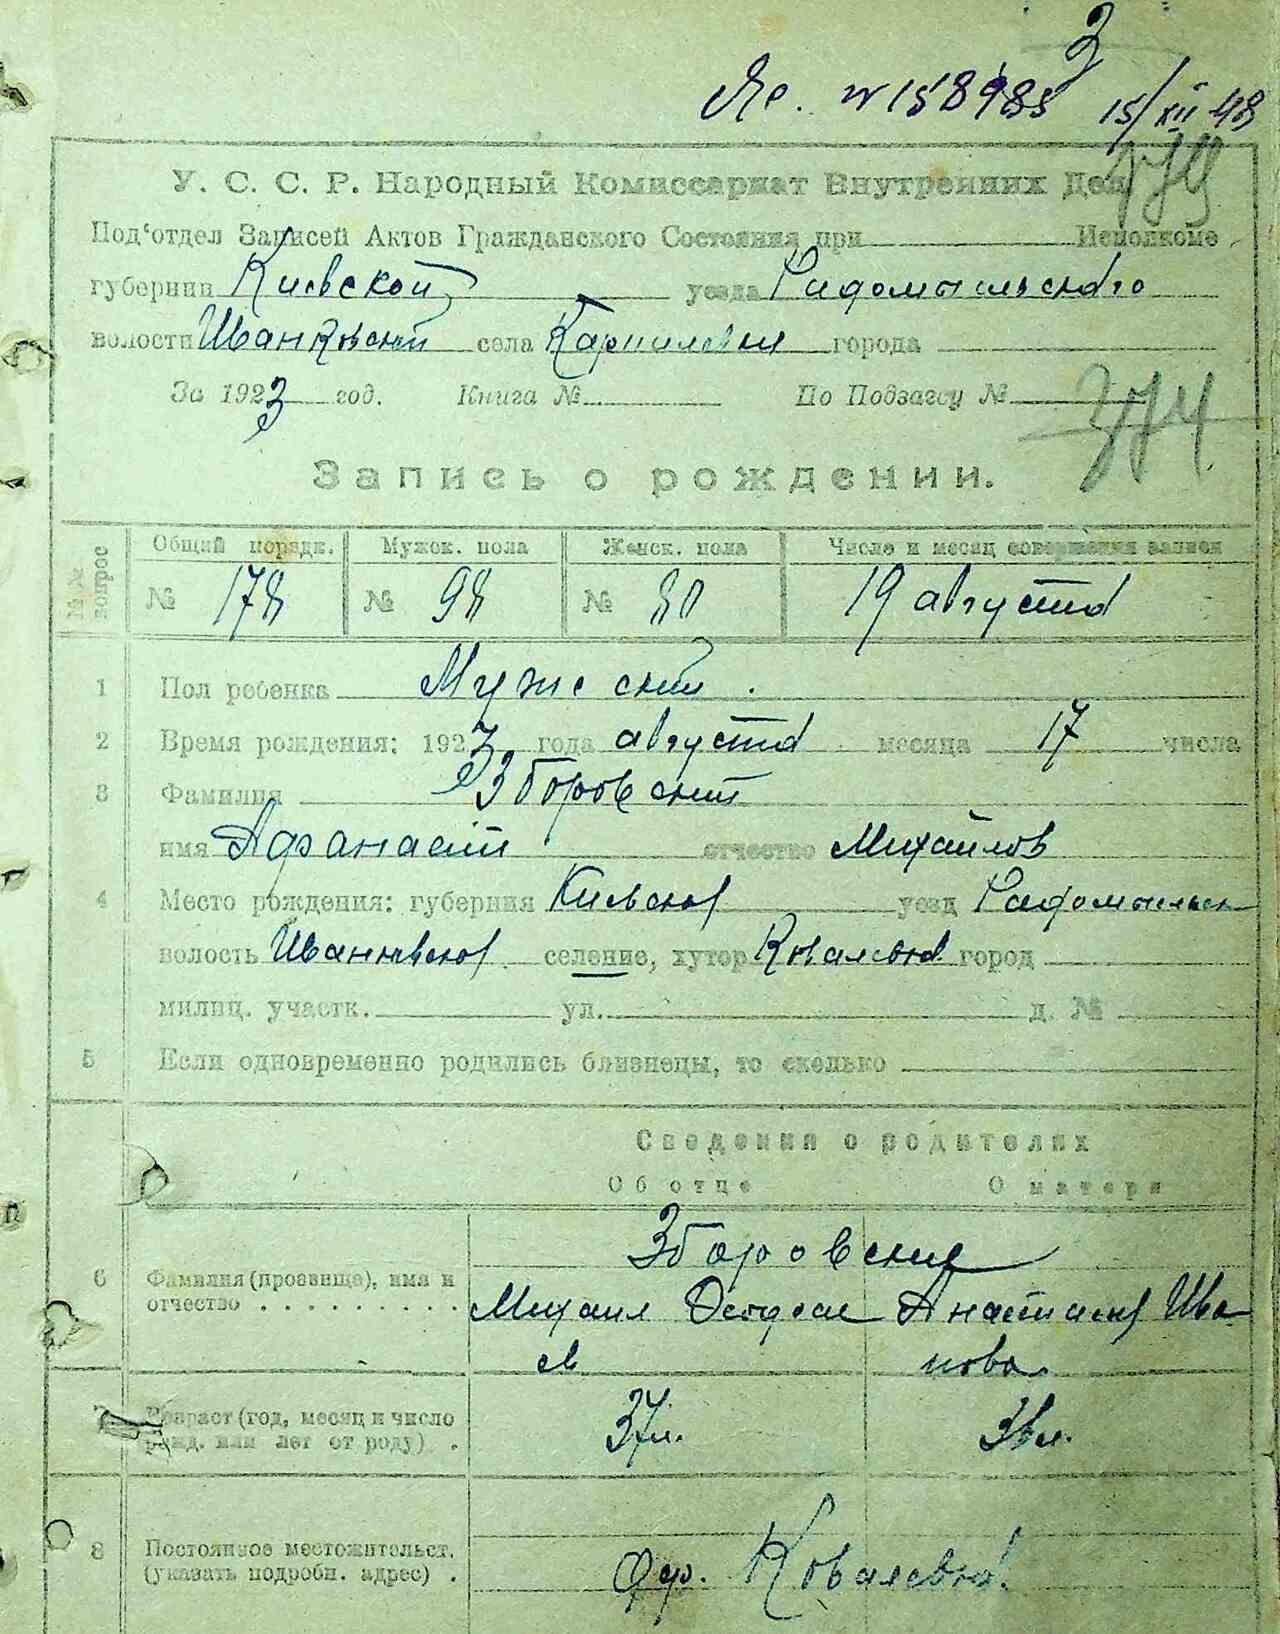 3
Яс. № 158985 15/XII 48
У. С. С. Р. Народный Комиссариат Внутренних Дел
Под'отдел Записей Актов Гражданского Состояния при Исполкоме
губернии Киевской уезда Радомысльского
волости Иванковской села Карпиловки города
За 1923 год. Книга № По Подзагсу №
374
Запись о рождении.
№№ вопрос
Общий порядк. Мужск. пола Женск. пола Число и месяц совершения записи
№ 178 № 98 № 80 19 августа
1 Пол ребенка Мужский.
2 Время рождения: 1923 года августа месяца 17 числа
3 Фамилия Зборовский
имя Афанасий отчество Михайлов
4 Место рождения: губерния Киевской уезд Радомысльск
волость Иванковской селение, хутор Ковалевка город
милиц. участк. ул. д. №
5 Если одновременно родились близнецы, то сколько
Сведения о родителях
Об отце О матери
Зборовские
6 Фамилия (прозвище), имя и Михаил Феодосі Анастасия Ива
отчество . . . . . . . . . . ев нова
7 Возраст (год, месяц и число 37 л.
рожд. или лет от роду) .
8 Постоянное местожительст. Ковалевка
(указать подробн. адрес) .